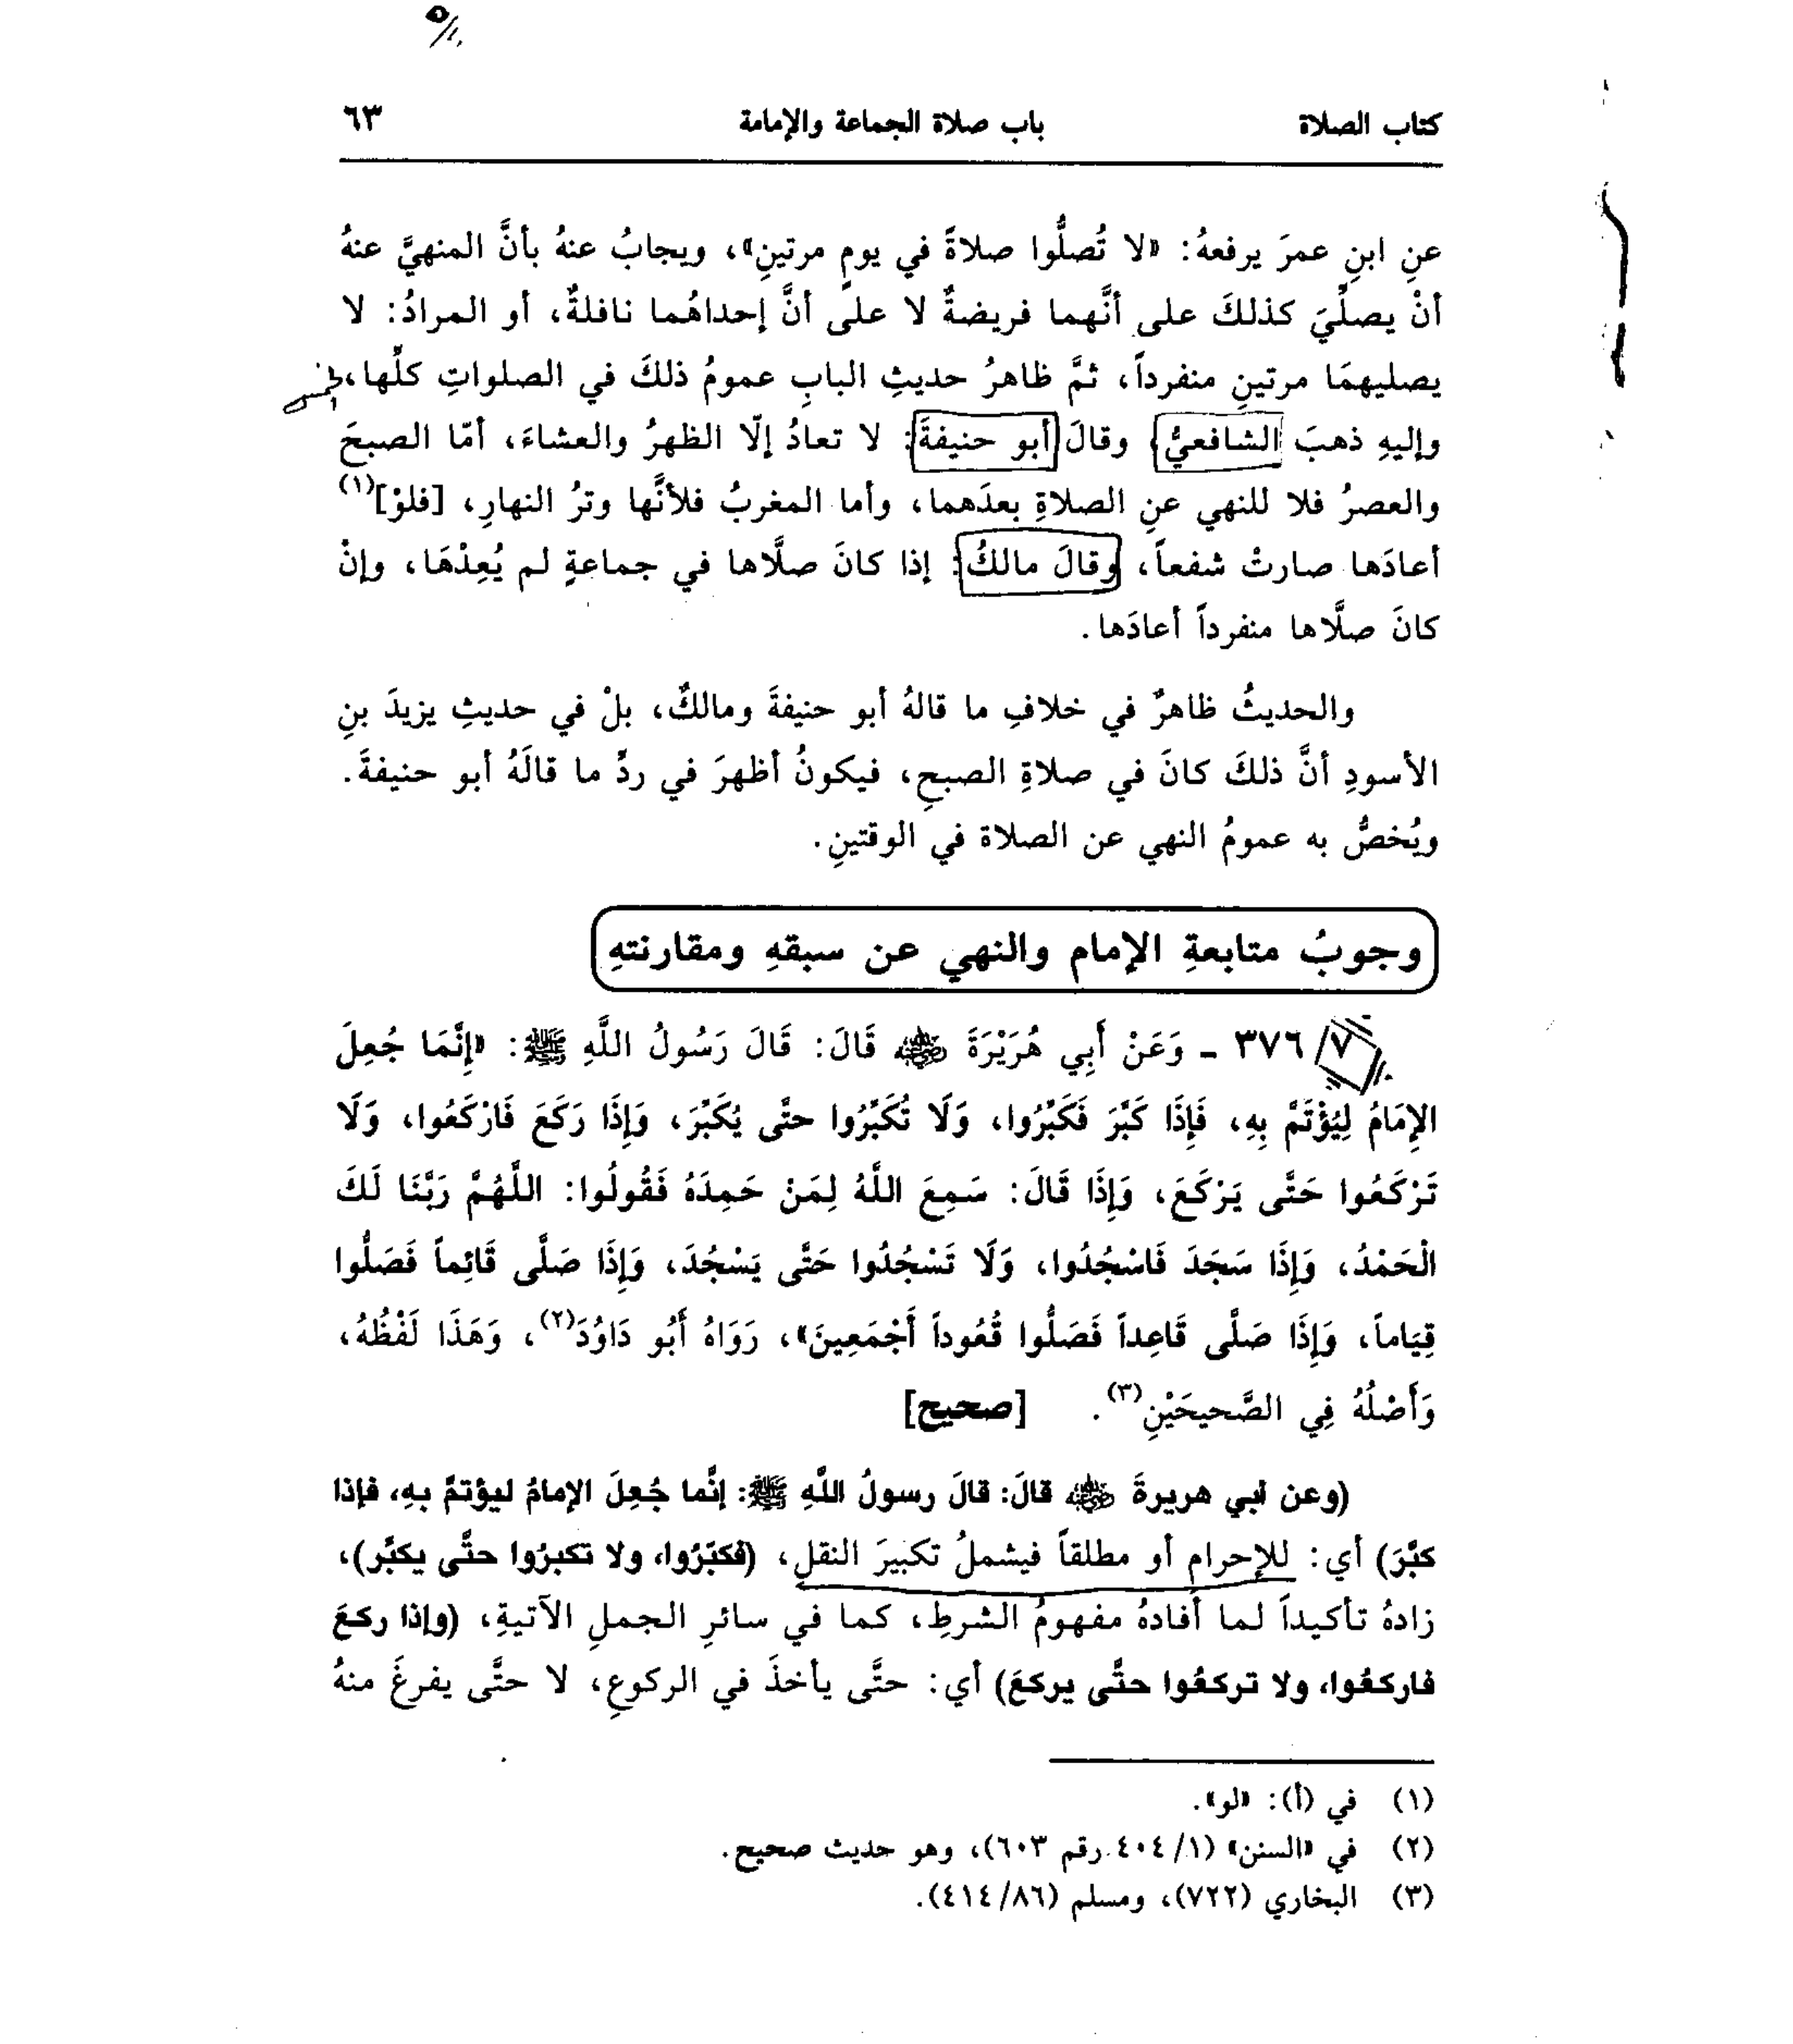 كتاب الصلاة باب صلاة الجماعة والإمامة ٦٣
عنِ ابنِ عمرَ يرفعهُ: «لا تُصلُّوا صلاةً في يومٍ مرتينِ»، ويجابُ عنهُ بأنَّ المنهيَّ عنهُ
أنْ يصلِّيَ كذلكَ على أنَّهما فريضةٌ لا على أنَّ إحداهُما نافلةٌ، أو المرادُ: لا
يصليهمَا مرتينِ منفرداً، ثمَّ ظاهرُ حديثِ البابِ عمومُ ذلكَ في الصلواتِ كلِّها،
وإليهِ ذهبَ الشافعيُّ، وقالَ أبو حنيفةَ: لا تعادُ إلّا الظهرُ والعشاءَ، أمّا الصبحَ
والعصرُ فلا للنهي عنِ الصلاةِ بعدَهما، وأما المغربُ فلأنَّها وترُ النهارِ، [فلوْ](١)
أعادَها صارتْ شفعاً، وقالَ مالكُ: إذا كانَ صلَّاها في جماعةٍ لم يُعِدْهَا، وإنْ
كانَ صلَّاها منفرداً أعادَها.
والحديثُ ظاهرٌ في خلافِ ما قالهُ أبو حنيفةَ ومالكٌ، بلْ في حديثِ يزيدَ بنِ
الأسودِ أنَّ ذلكَ كانَ في صلاةِ الصبحِ، فيكونُ أظهرَ في ردِّ ما قالَهُ أبو حنيفةَ.
ويُخصُّ به عمومُ النهي عن الصلاة في الوقتينِ.
وجوبُ متابعةِ الإمام والنهي عن سبقهِ ومقارنتهِ
٣٧٦/٧ - وَعَنْ أَبِي هُرَيْرَةَ رضي الله عنه قَالَ: قَالَ رَسُولُ اللَّهِ ﷺ: «إِنَّمَا جُعِلَ
الإِمَامُ لِيُؤْتَمَّ بِهِ، فَإِذَا كَبَّرَ فَكَبِّرُوا، وَلَا تُكَبِّرُوا حتَّى يُكَبِّرَ، وَإِذَا رَكَعَ فَارْكَعُوا، وَلَا
تَرْكَعُوا حَتَّى يَرْكَعَ، وَإِذَا قَالَ: سَمِعَ اللَّهُ لِمَنْ حَمِدَهُ فَقُولُوا: اللَّهُمَّ رَبَّنَا لَكَ
الْحَمْدُ، وَإِذَا سَجَدَ فَاسْجُدُوا، وَلَا تَسْجُدُوا حَتَّى يَسْجُدَ، وَإِذَا صَلَّى قَائِماً فَصَلُّوا
قِيَاماً، وَإِذَا صَلَّى قَاعِداً فَصَلُّوا قُعُوداً أَجْمَعِينَ»، رَوَاهُ أَبُو دَاوُدَ(٢)، وَهَذَا لَفْظُهُ،
وَأَصْلُهُ فِي الصَّحيحَيْنِ(٣). [صحيح]
(وعن ابي هريرةَ رضي الله عنه قالَ: قالَ رسولُ اللَّهِ ﷺ: إنَّما جُعِلَ الإمامُ ليؤتمَّ بهِ، فإذا
كبَّرَ) أي: للإحرامِ أو مطلقاً فيشملُ تكبيرَ النقلِ، (فكبّرُوا، ولا تكبرُوا حتَّى يكبَّر)،
زادهُ تأكيداً لما أفادهُ مفهومُ الشرطِ، كما في سائرِ الجملِ الآتيةِ، (وإذا ركعَ
فاركعُوا، ولا تركعُوا حتَّى يركعَ) أي: حتَّى يأخذَ في الركوعِ، لا حتَّى يفرغَ منهُ
(١) في (أ): «لو».
(٢) في «السنن» (٤٠٤/١ رقم ٦٠٣)، وهو حديث صحيح.
(٣) البخاري (٧٢٢)، ومسلم (٤١٤/٨٦).